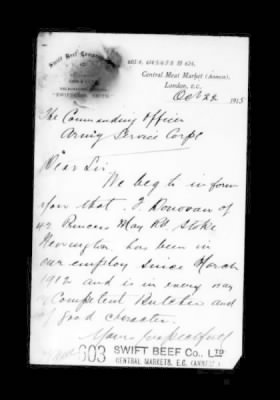 Swift Beef Company
Central Meat Market (Annexe),
London, E.C.
Oct 22 1915
The Commanding Officer
Army Service Corps
Dear Sir
We beg to inform
you that J. Donovan of
42 Princess May Rd Stoke
Newington has been in
our employ since March
1912 and is in every way
a Competent Butcher and
of good character.
Yours respectfully
603 SWIFT BEEF Co., LTD
CENTRAL MARKETS, E.C. (ANNEXE)